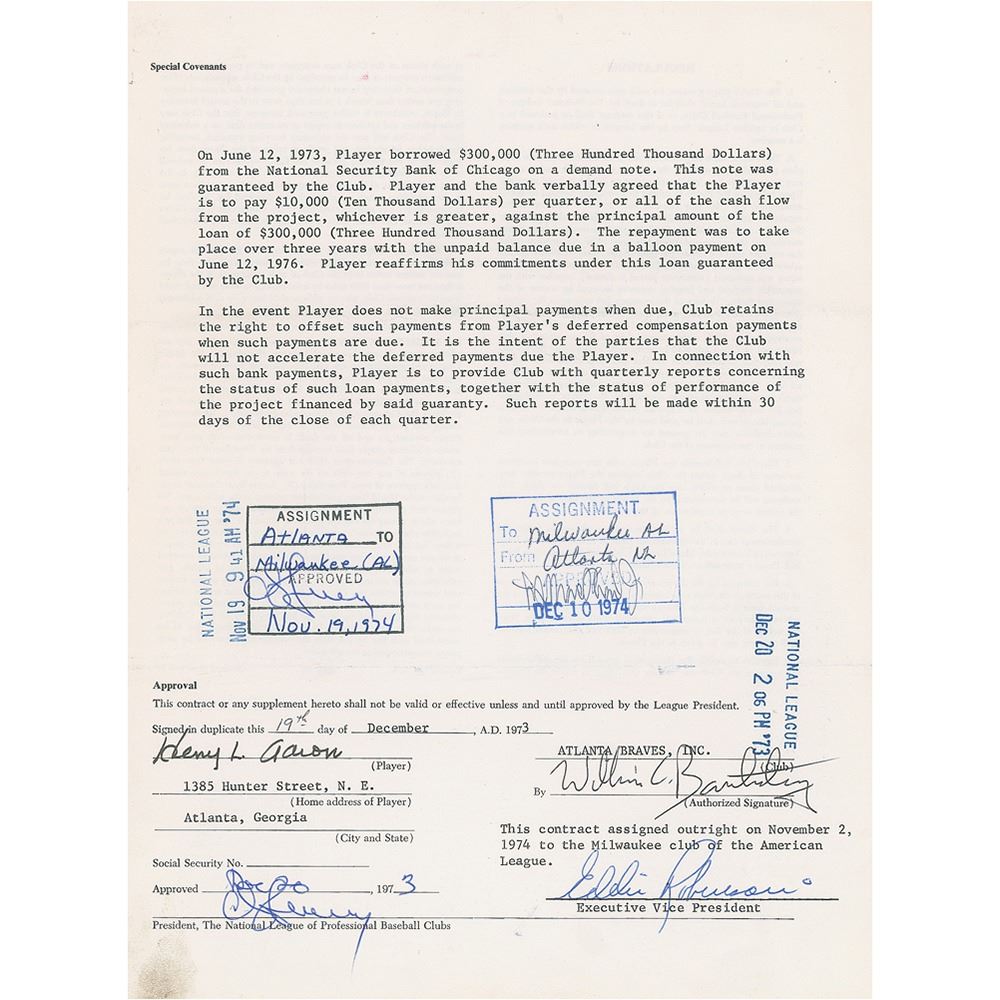 Special Covenants
On June 12, 1973, Player borrowed $300,000 (Three Hundred Thousand Dollars)
from the National Security Bank of Chicago on a demand note. This note was
guaranteed by the Club. Player and the bank verbally agreed that the Player
is to pay $10,000 (Ten Thousand Dollars) per quarter, or all of the cash flow
from the project, whichever is greater, against the principal amount of the
loan of $300,000 (Three Hundred Thousand Dollars). The repayment was to take
place over three years with the unpaid balance due in a balloon payment on
June 12, 1976. Player reaffirms his commitments under this loan guaranteed
by the Club.
In the event Player does not make principal payments when due, Club retains
the right to offset such payments from Player's deferred compensation payments
when such payments are due. It is the intent of the parties that the Club
will not accelerate the deferred payments due the Player. In connection with
such bank payments, Player is to provide Club with quarterly reports concerning
the status of such loan payments, together with the status of performance of
the project financed by said guaranty. Such reports will be made within 30
days of the close of each quarter.
NATIONAL LEAGUE
Nov 19 9 41 AM '74
ASSIGNMENT
Atlanta TO
Milwaukee (AL)
APPROVED
Nov. 19, 1974
ASSIGNMENT
To Milwaukee AL
From Atlanta NL
APPROVED
DEC 10 1974
NATIONAL LEAGUE
Dec 20 2 06 PM '73
Approval
This contract or any supplement hereto shall not be valid or effective unless and until approved by the League President.
Signed in duplicate this 19th day of December, A.D. 1973
Henry L. Aaron
(Player)
1385 Hunter Street, N. E.
(Home address of Player)
Atlanta, Georgia
(City and State)
Social Security No.
Approved Dec 20, 1973
President, The National League of Professional Baseball Clubs
ATLANTA BRAVES, INC.
(Club)
By William C. Bartholomay
(Authorized Signature)
This contract assigned outright on November 2,
1974 to the Milwaukee club of the American
League.
Eddie Robinson
Executive Vice President